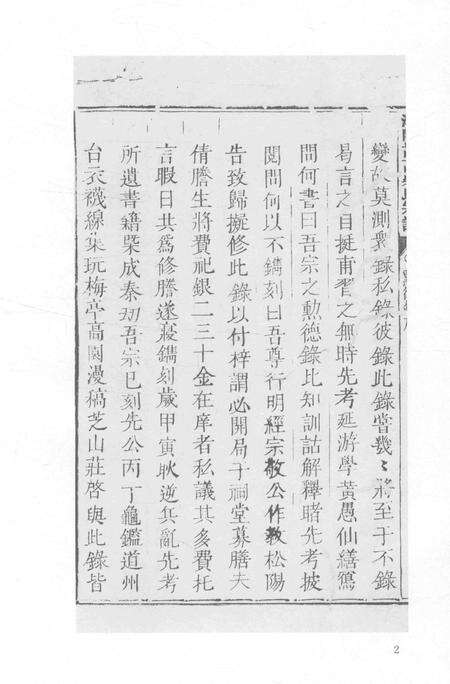 變故莫測裂錄私錄彼錄此錄嘗幾〻將至于不錄
曷言之自挺甫習之無時先考延游學黃愚仙繕寫
問何書曰吾宗之勲德錄比知訓詁解釋睹先考披
閱問何以不鐫刻曰吾尊行明經宗敎公作敎松陽
告致歸擬修此錄以付梓謂必開局于祠堂募膳夫
倩謄生將費祀銀二三十金在庠者私議其多費托
言暇日共爲修謄遂寢鐫刻歲甲寅耿逆兵亂先考
所遺書籍槩成秦刼吾宗已刻先公丙丁龜鑑道州
台衣襪線集玩梅亭高園漫稿芝山莊啓與此錄皆
2